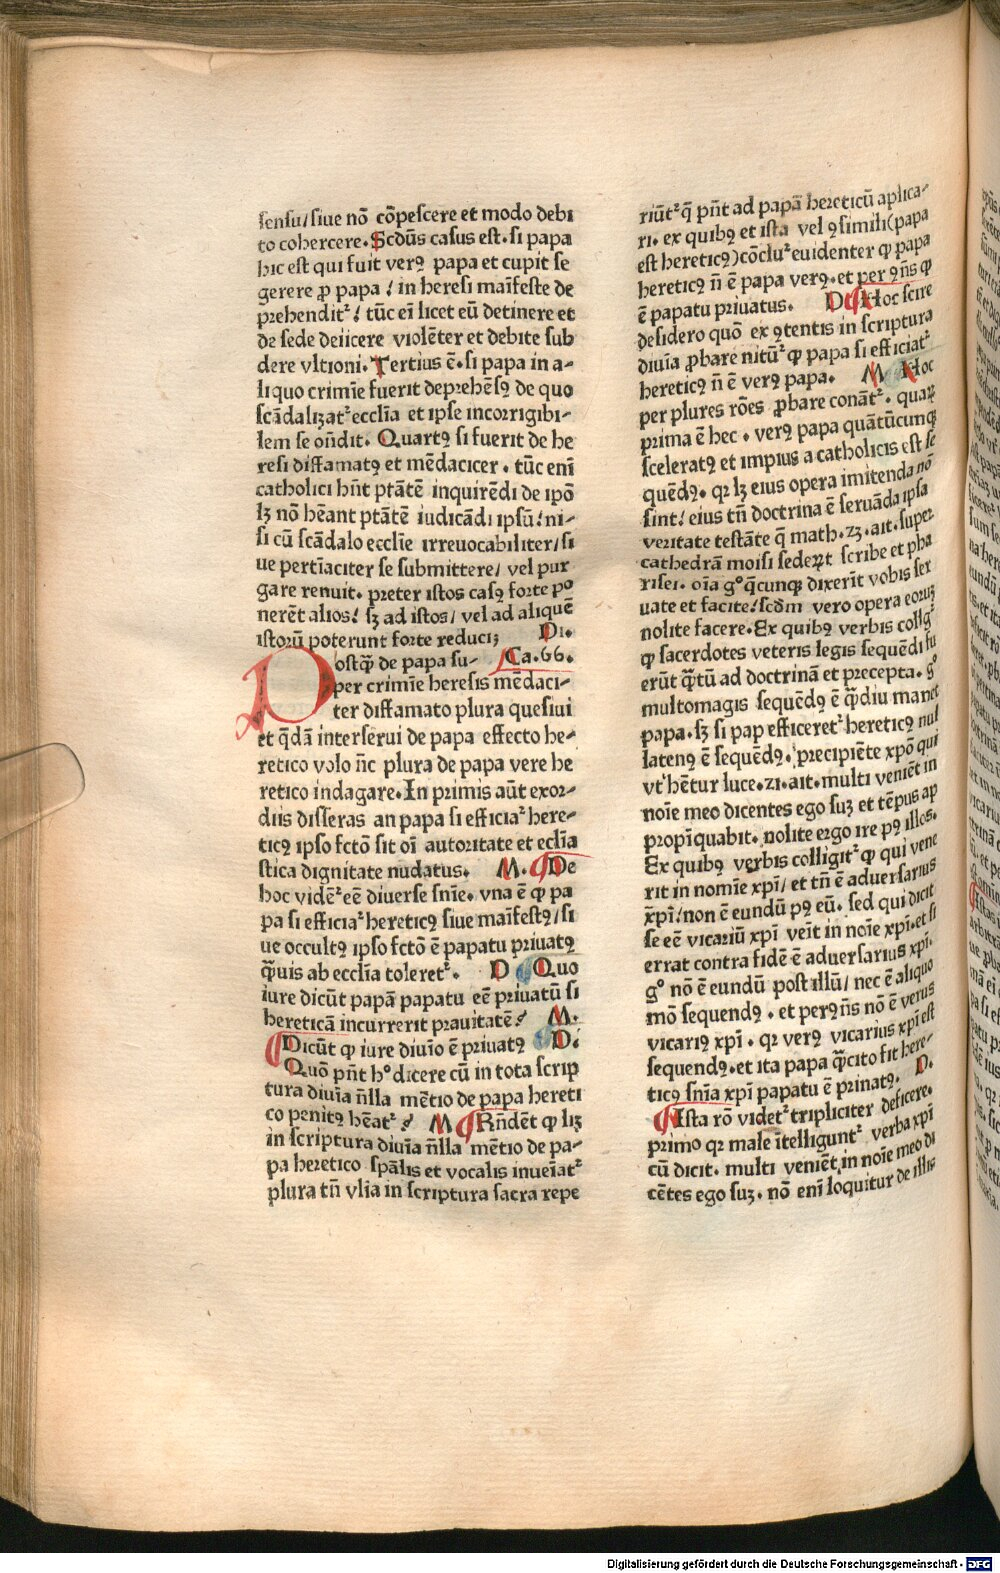 sensu/siue nō cōpescere et modo debi
to cohercere. Scdūs casus est. si papa
hic est qui fuit verꝯ papa et cupit se
gerere ꝓ papa / in heresi maīfeste de
prehendit᷑ / tūc eī licet eū detinere et
de sede deiicere violēter et debite sub
dere vltioni. Tertius ē. si papa in a-
liquo crimīe fuerit deprehēsꝯ de quo
scādalizat᷑ ecclīa et ipse incorrigibi-
lem se oñdit. Quartꝯ si fuerit de he
resi diffamatꝯ et mēdacicer. tūc enī
catholici hñt ptātē inquirēdi de ipō
lꝫ nō hēant ptātē iudicādi ipsū / ni-
si cū scādalo ecclīe irreuocabiliter/si
ue pertīaciter se submittere/ vel pur
gare renuit. preter istos casꝯ forte po
nerēt alios / sꝫ ad istos/ vel ad aliquē
istorū poterunt forte reduci; Di.
Postꝗ̃ de papa su- Ca.66.
per crimīe heresis mēdaci-
ter diffamato plura quesiui
et q̄dā interserui de papa effecto he-
retico volo ñc plura de papa vere he
retico indagare. In primis aūt exor-
diis disseras an papa si efficia᷑ here-
ticꝯ ipso fctō sit oī autoritate et eclīa
stica dignitate nudatus. M. ¶De
hoc vidē᷑ eē diuerse snīe. vna ē ꝙ pa
pa si efficia᷑ hereticꝯ siue maīfestꝯ/si
ue occultꝯ ipso fctō ē papatu priuatꝯ
ꝗ̃uis ab ecclīa toleret᷑. D Quo
iure dicūt papā papatu eē priuatū si
hereticā incurrerit prauitatē? M.
¶Dicūt ꝙ iure diuīo ē priuatꝯ D.
Quō pñt hᵒ dicere cū in tota scrip
tura diuīa ñlla mētio de papa hereti
co penitꝯ hēat᷑? M ¶Rñdēt ꝙ lꝫ
in scriptura diuīa ñlla mētio de pa-
pa heretico spālis et vocalis inueīat᷑
plura tñ vlīa in scriptura sacra repe
riūt᷑ q̄ pñt ad papā hereticū aplica-
ri. ex quibꝯ et ista vel ꝯsimili(papa
est hereticꝯ)cōclu᷑ euidenter ꝙ papa
hereticꝯ ñ ē papa verꝯ. et per ꝯñs ꝙ
ē papatu priuatus. D ¶Hoc scire
desidero quō ex ꝯtentis in scriptura
diuīa ꝓbare nitū᷑ ꝙ papa si efficiat᷑
hereticꝯ ñ ē verꝯ papa. M Hoc
per plures rōes ꝓbare conāt᷑. quaꝝ
prima ē hec. verꝯ papa quātūcunqꝫ
sceleratꝯ et impius a catholicis est se
quēdꝯ. qꝛ lꝫ eius opera imitenda nō
sint / eius tñ doctrina ē seruāda ipsa
veritate testāte q̄ math.23. ait. super
cathedrā moisi sedeꝝt scribe et pha
risei. oīa gᵒ q̄cunqꝫ dixerīt vobis ser
uate et facite / scdm vero opera eoruꝫ
nolite facere. Ex quibꝯ verbis collig᷑
ꝙ sacerdotes veteris legis sequēdi fu
erūt ꝗ̃tū ad doctrinā et precepta. gᵒ
multomagis sequēdꝯ ē ꝗ̃diu manet
papa. sꝫ si pap efficeret᷑ hereticꝯ nul
latenꝯ ē sequēdꝯ. precipiēte xpō qui
vt hētur luce.21. ait. multi veniēt in
noīe meo dicentes ego suꝫ et tēpus ap
propīquabit. nolite ergo ire pꝯ illos.
Ex quibꝯ verbis colligit᷑ ꝙ qui vene
rit in nomīe xpī/ et tñ ē aduersarius
xpī / non ē eundū pꝯ eū. sed qui dicit
se eē vicariū xpī veīt in noīe xpī. et si
errat contra fidē ē aduersarius xpī.
gᵒ nō ē eundū post illū/ nec ē aliquo
mō sequendꝯ. et perꝯñs nō ē verus
vicariꝯ xpī. qꝛ verꝯ vicarius xpī est
sequendꝯ. et ita papa ꝗ̃cito fit here-
ticꝯ snīa xpī papatu ē prinatꝯ. D.
¶Ista rō videt᷑ tripliciter deficere.
primo qꝛ male ītelligunt᷑ verba xpī
cū dicit. multi veniēt in noīe meo di
cētes ego suꝫ. nō enī loquitur de illis
Digitalisierung gefördert durch die Deutsche Forschungsgemeinschaft - DFG